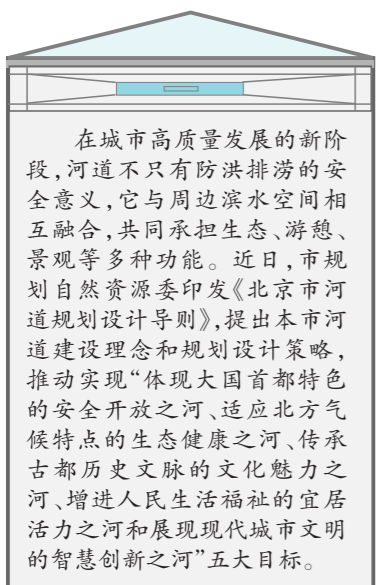 在城市高质量发展的新阶
段,河道不只有防洪排涝的安
全意义,它与周边滨水空间相
互融合,共同承担生态、游憩、
景观等多种功能。近日,市规
划自然资源委印发《北京市河
道规划设计导则》,提出本市河
道建设理念和规划设计策略,
推动实现“体现大国首都特色
的安全开放之河、适应北方气
候特点的生态健康之河、传承
古都历史文脉的文化魅力之
河、增进人民生活福祉的宜居
活力之河和展现现代城市文明
的智慧创新之河”五大目标。